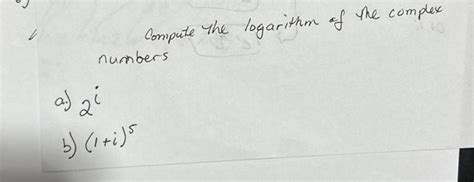 Compute the logarithm of the complex
numbers
a) 2^i
b) (1+i)^5